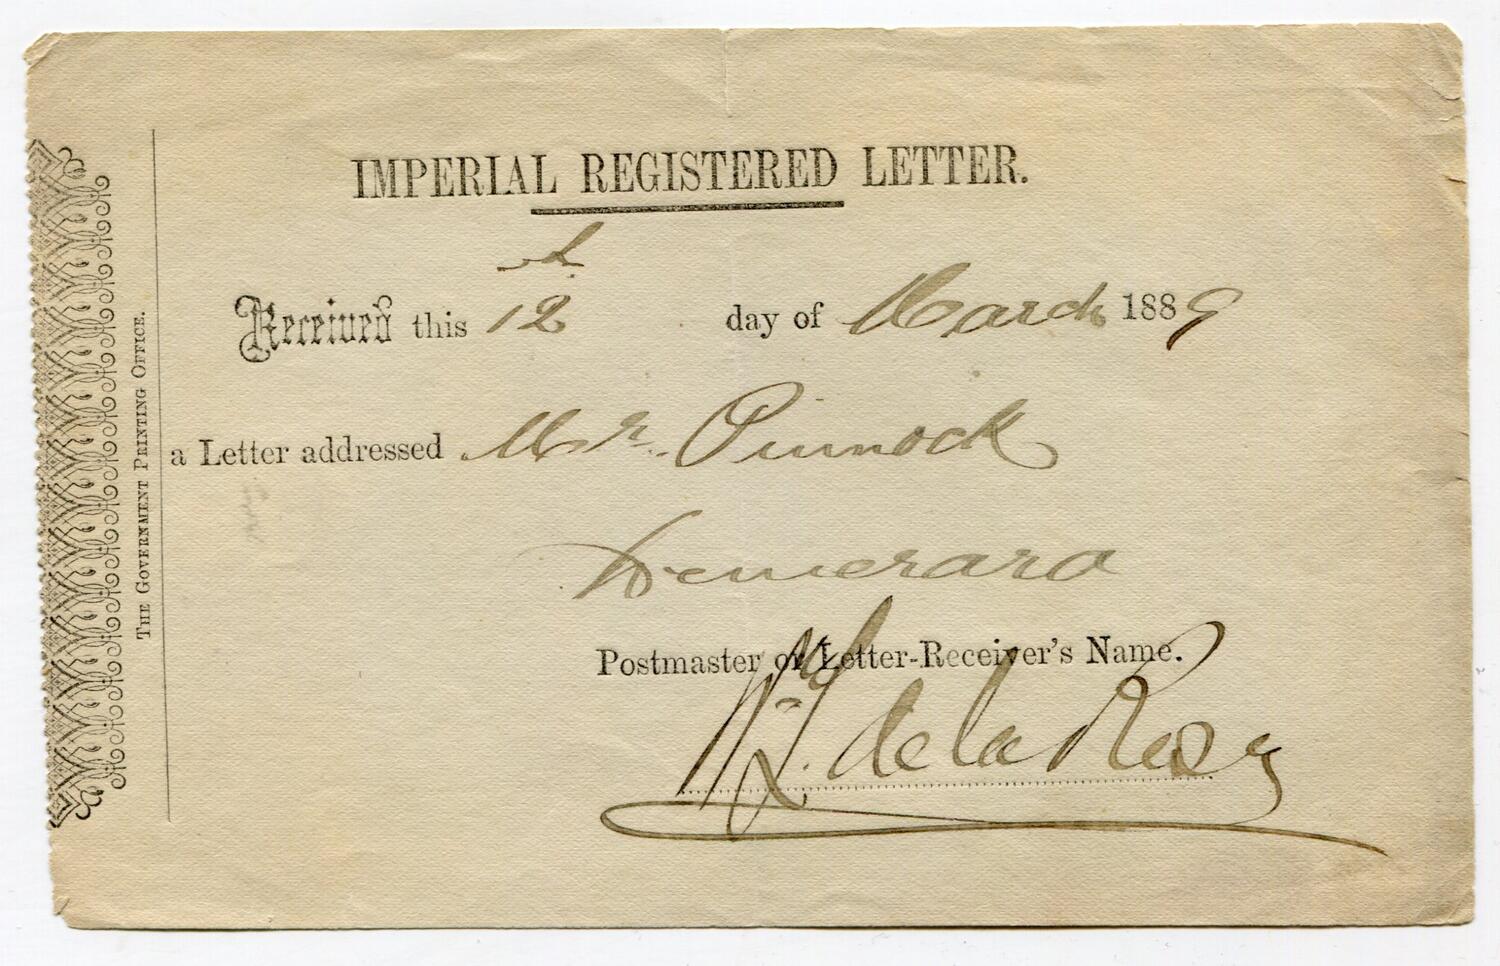 IMPERIAL REGISTERED LETTER.
Received this 12th day of March 1889
a Letter addressed Mr. Pinnock
Demerara
Postmaster or Letter-Receiver's Name.
de la Rosa
THE GOVERNMENT PRINTING OFFICE.